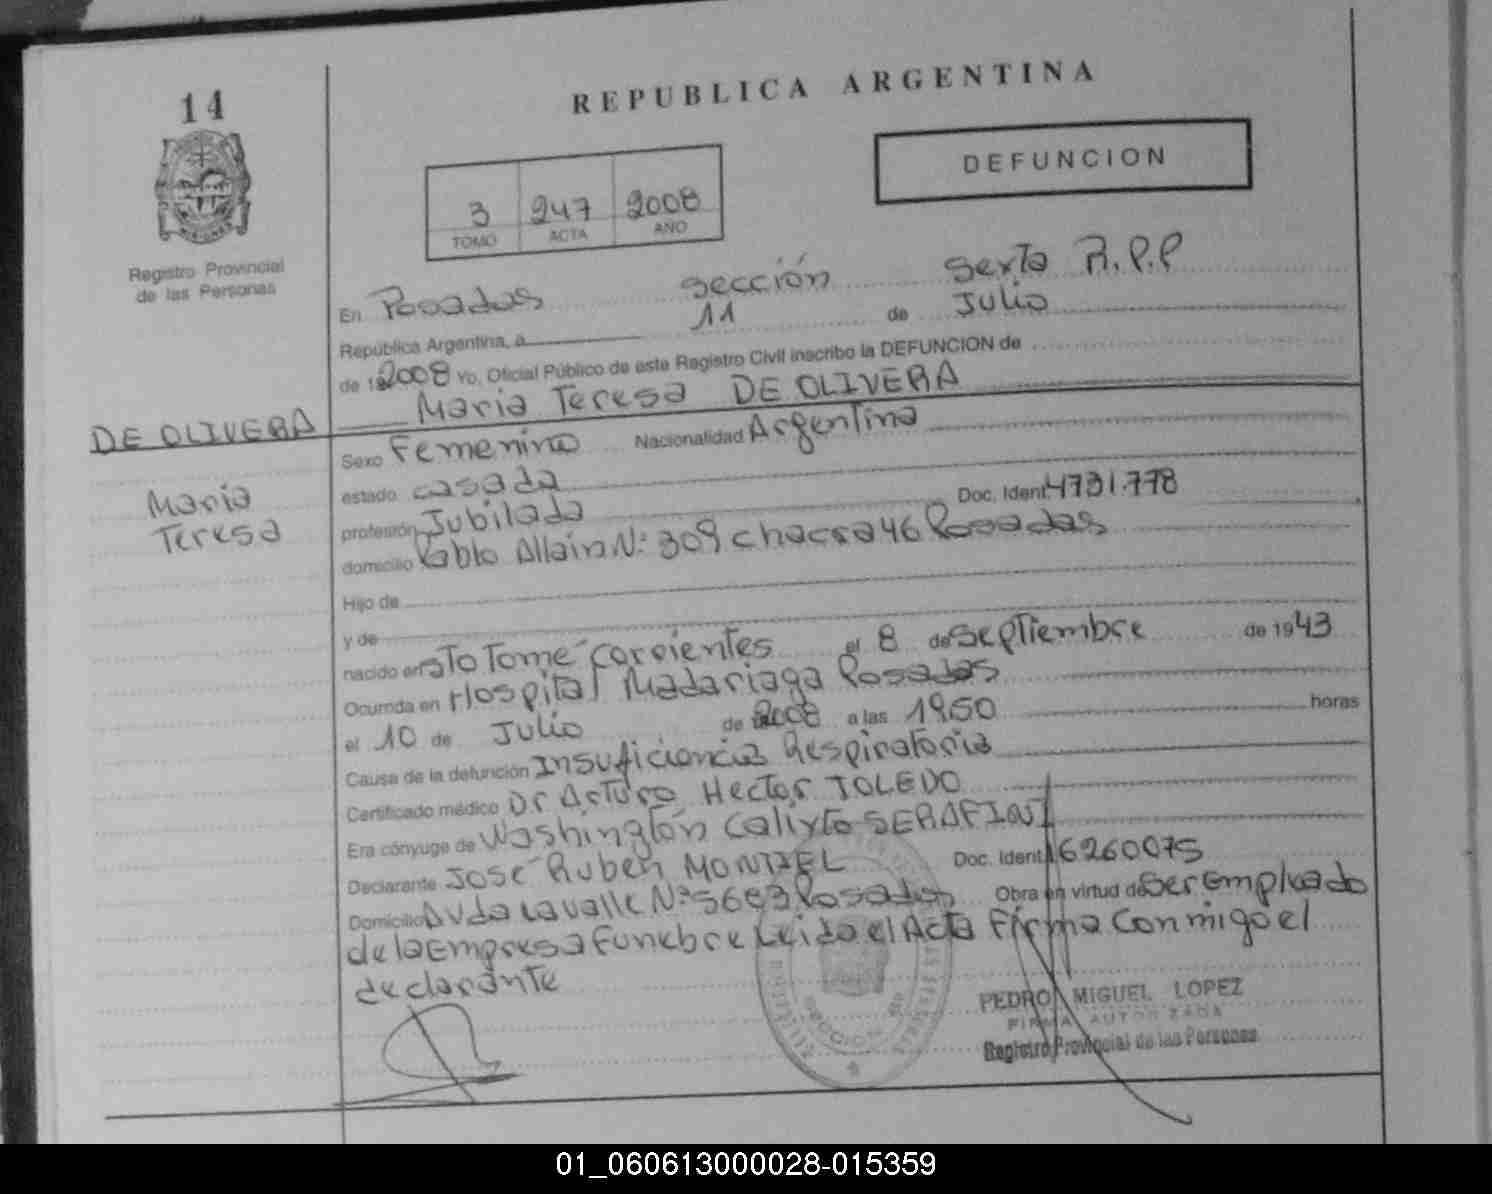 14
REPUBLICA ARGENTINA
DEFUNCION
3 247 2008
TOMO ACTA AÑO
Registro Provincial
de las Personas
En Posadas sección sexta R.P.P
República Argentina, a 11 de Julio
de 2008 Yo, Oficial Público de este Registro Civil inscribo la DEFUNCION de
Maria Teresa DE OLIVERA
DE OLIVERA
Maria
Teresa
Sexo Femenino Nacionalidad Argentina
estado casada
profesión Jubilada Doc. Ident. 4731.778
domicilio Pablo Allain N: 309 chacra 46 Posadas
Hijo de
y de
nacido en Sto Tome Corrientes el 8 de Septiembre de 1943
Ocurrida en Hospital Madariaga Posadas
el 10 de Julio de 2008 a las 1950 horas
Causa de la defunción Insuficiencia Respiratoria
Certificado médico Dr Arturo Hector TOLEDO
Era cónyuge de Washington Calixto SERAFINI
Declarante José Ruben MONTIEL Doc. Ident. 16260075
Domicilio Avda Lavalle N: 5683 Posadas Obra en virtud de ser Empleado
de la Empresa Funebre Leido el Acta Firma Conmigo el
declarante
PEDRO MIGUEL LOPEZ
FIRMA AUTORIZADA
Registro Provincial de las Personas
01_060613000028-015359